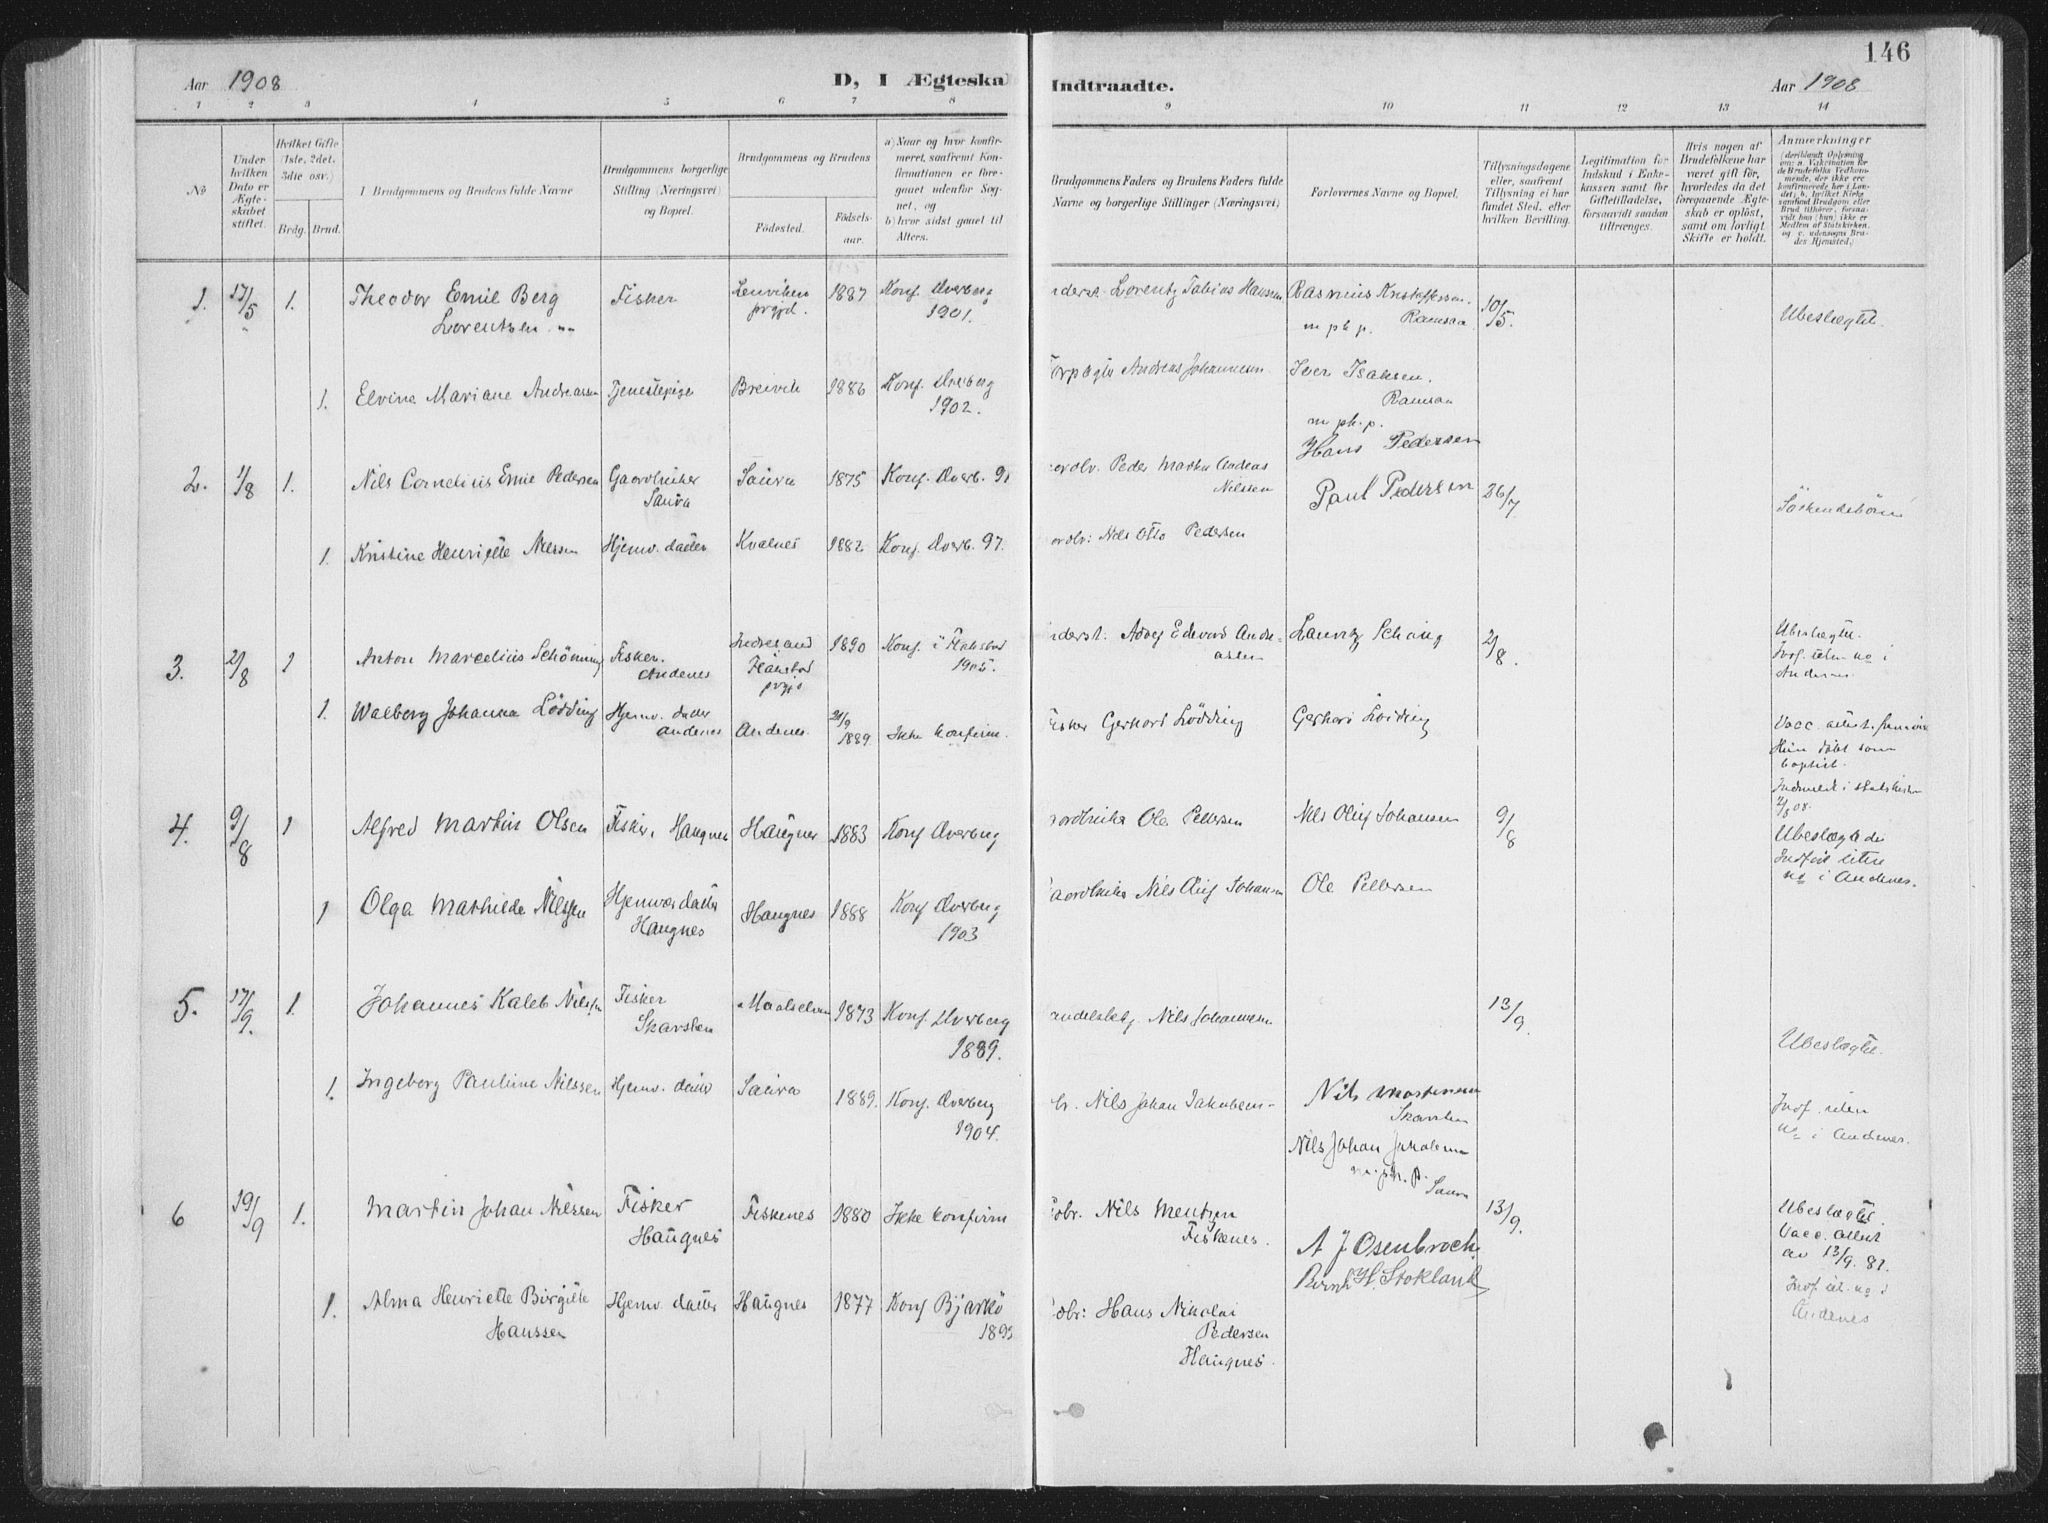 146
Aar 1908
D, I Ægteska
Indtraadte.
Aar 1908
1 2 3 4 5 6 7 8 9 10 11 12 13 14
No
Under hvilken Dato er Ægteskabet stiftet.
Hvilket Gifte (1ste, 2det, 3die osv.)
Brdg. Brud.
I Brudgommens og Brudens fulde Navne
Brudgommens borgerlige Stilling (Næringsvei) og Bopæl.
Brudgommens og Brudens
Fødested. Fødselsaar.
a) Naar og hvor konfirmeret, saafremt Konfirmationen er foregaaet udenfor Sognet, og
b) hvor sidst gaaet til Alters.
Brudgommens Faders og Brudens Faders fulde Navne og borgerlige Stillinger (Næringsvei)
Forlovernes Navne og Bopæl.
Tillysningsdagene eller, saafremt Tillysning ei har fundet Sted, efter hvilken Bevilling.
Legitimation for Indskud i Enkekassen samt for Giftetilladelse, forsaavidt saadan tiltrænges.
Hvis nogen af Brudefolkene har været gift før, hvorledes da det foregaaende Ægteskab er opløst, samt om lovligt Skifte er holdt.
Anmerkninger
1. 17/5 1. Theodor Emil Berg Fisker Lenviken 1887 Konf. Dverberg
Lorentsen prgjd. 1901.
Lorentz Tobias Hansen Rasmus Kristoffersen 10/5. Ubeslægtet.
m. p. p. Ramsaa
1. Elvine Mariane Andreassen Tjenestepige Breivik 1886 Konf. Dverberg
1902.
Andreas Johannesen Iver Isaksen.
Ramsaa
m. ph. p.
2. 1/8 1. Nils Cornelius Emil Pedersen Gaardbruker Saura 1875 Konf. Dverb. 91
Saura
Peder Martin Andreas Hans Pedersen
Nilssen Paul Pedersen 26/7 Söskendebörn
1. Kristine Henriette Nilssen Hjemv. datter Kvalnes 1882 Konf. Dverb. 97.
Nils Otto Pedersen
3. 2/8 1 Anton Marcelius Schönning Fisker. 1890 Konf. i Flakstad
Andenes Flakstad 1905.
prgjd
Edvard Andreassen Lauritz Schöning 2/8. Ubeslægtet.
Indf. uten no i
Andenes.
1. Walborg Johanna Lödding Hjemv. datter Andenes 21/9 1889. Ikke konfirm.
Andenes
Fisker Gerhard Lödding Gerhard Lödding
Hun döbt som
baptist.
4. 9/8 1 Alfred Martin Olsen Fisker, Haugnes Haugnes 1883 Konf Dverberg
Ole Pettersen Nils Oluf Johansen 9/8 Ubeslægtede
Indfört uten
no i Andenes.
1 Olga Mathilde Nilssen Hjemvær. datter Haugnes 1888 Konf Dverberg
Haugnes 1903
Nils Oluf Johansen Ole Pettersen
5. 17/9. 1. Johannes Kaleb Nilssen Fisker Maalselven 1873 Konf. Dverberg
Skarsten 1889.
Nils Johannesen 13/9. Ubeslægtet.
1. Ingeborg Pauline Nilssen Hjemv. datter Saura 1889. Konf. Dverberg
1904.
Nils Johan Jakobsen Nils Mortensen
Skarsten
Indf. uten
no i Andenes.
Nils Johan Jakobsen
m. ph. p. Saura
6 19/9 1. Martin Johan Nilssen Fisker Fiskenes 1880 Ikke konfirm
Haugnes
Nils Mentzen 13/9. Ubeslægtet.
Fiskenes. Vacc. attest
av 13/9. 81.
A J Osenbroch.
Bernh H. Stokland
1. Alma Henriette Birgitte Hjemv. datter Haugnes 1877 Konf Bjarkö
Hanssen
Hans Nikolai
Pedersen
Haugnes.
Indf. ut. no i
Andenes